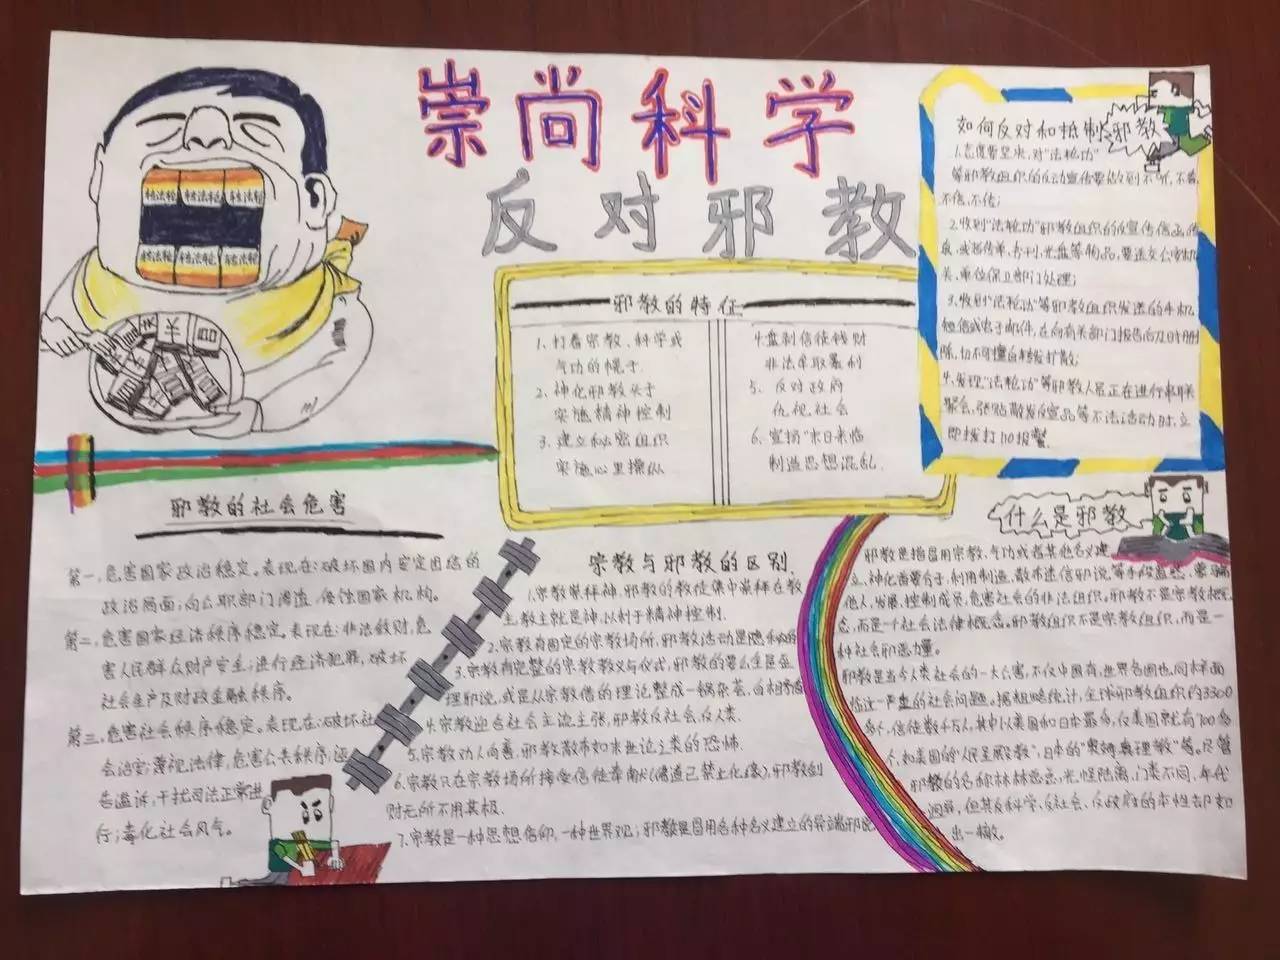 崇尚科学
反对邪教
转法轮 转法轮 转法轮
转法轮 转法轮 转法轮
邪教的特征
1、打着宗教、科学或
气功的幌子.
2、神化邪教头子
实施精神控制
3、建立秘密组织
实施心里操纵
4.盘剥信徒钱财
非法牟取暴利
5、反对政府
仇视社会
6、宣扬"末日来临
制造思想混乱.
如何反对和抵制邪教
1.态度要坚决,对"法轮功"
等邪教组织的反动宣传要做到不听,不看,
不信,不传;
2.收到"法轮功"邪教组织的反宣传信函传
真,或者传单、书刊,光盘等物品,要送交公安机
关、单位保卫部门处理;
3.收到"法轮功"等邪教组织发送的手机
短信或电子邮件,在向有关部门报告后及时删
除,切不可擅自转发扩散;
4.发现"法轮功"等邪教人员正在进行串联
聚会,张贴散发反宣品等不法活动时,立
即拨打110报警.
邪教的社会危害
第一,危害国家政治稳定。表现在:破坏国内安定团结的
政治局面;向公职部门渗透,侵蚀国家机构。
第二,危害国家经济秩序稳定。表现在:非法敛财,危
害人民群众财产安全;进行经济犯罪,破坏
社会生产及财政金融秩序。
第三,危害社会秩序稳定。表现在:破坏社
会治安;蔑视法律,危害公共秩序;诬
告滥诉,干扰司法正常进
行;毒化社会风气。
宗教与邪教的区别.
1.宗教崇拜神,邪教的教徒集中崇拜在教
主,教主就是神,以利于精神控制.
2.宗教有固定的宗教场所,邪教活动是隐秘的
3.宗教有完整的宗教教义与仪式,邪教的要么全是歪
理邪说,或是从宗教借的理论整成一锅杂荟,自相矛盾
4.宗教迎合社会主流主张,邪教反社会,反人类.
5.宗教劝人向善,邪教散布如末世论之类的恐怖.
6.宗教只在宗教场所接受信徒奉献(佛道已禁止化缘),邪教创
财无所不用其极.
7.宗教是一种思想信仰,一种世界观;邪教是冒用各种名义建立的异端邪说
什么是邪教
邪教是指冒用宗教、气功或者其他名义建
立、神化首要分子,利用制造、散布迷信邪说等手段蛊惑、蒙骗
他人,发展、控制成员,危害社会的非法组织。邪教不是宗教概
念,而是一个社会法律概念。邪教组织不是宗教组织,而是一
种社会邪恶力量。
邪教是当今人类社会的一大公害,不仅中国有,世界各国也同样面
临这一严重的社会问题。据粗略统计,全球邪教组织约3300
多个,信徒数千万人,其中以美国和日本最多,仅美国就有700多
个,如美国的"人民圣殿教",日本的"奥姆真理教"等。尽管
邪教的名称林林总总,光怪陆离,门类不同,年代
迥异,但其反科学、反社会、反政府的本性却如
出一辙。